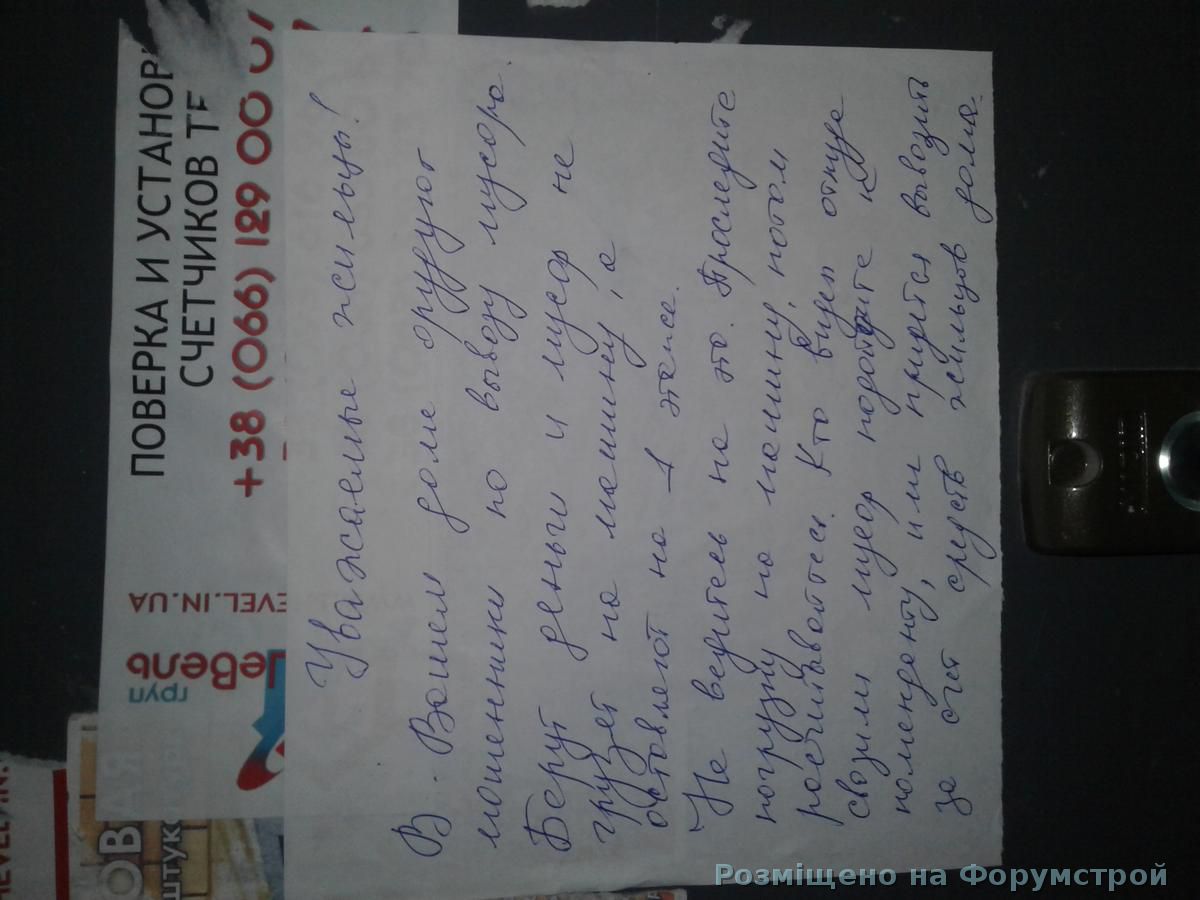 ПОВЕРКА И УСТАНОВ
СЧЕТЧИКОВ ТЕ
+38 (066) 129 00
EVEL.IN.UA
ЦеВель
груп
HEVEL.IN.
ОВАЯ
ШТУК
Уважаемые жильцы!
В Вашем доме орудуют
мошенники по вывозу мусора.
Берут деньги и мусор не
грузят на машину, а
оставляют на 1 этаже.
Не ведитесь на это. Проследите
погрузку на машину, потом
расчитывайтесь. Кто видел откуда
свозили мусор подойдите к
коменданту, или придется вывозить
за счет средств жильцов дома.
Розміщено на Форумстрой